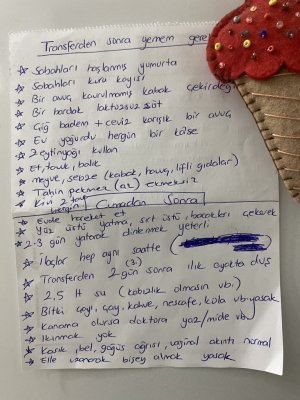 Transferden sonra yemem gere
☆ Sabahları haşlanmış yumurta
☆ Sabahları kuru kayısı
☆ Bir avuç kavrulmamış kabak çekirdeği
☆ Bir bardak laktozsuz süt
☆ Çiğ badem + ceviz karışık bir avuç
☆ Ev yoğurdu hergün bir kase
☆ Zeytinyağı kullan
☆ Et, tavuk, balık
☆ meyve, sebze (kabak, havuç, lifli gıdalar)
☆ Tahin pekmez (az) ekmeksiz
☆ Kivi 2 tane hergün
Cumadan Sonra
☆ Evde hareket et
☆ Yüz üstü yatma, sırt üstü, bacakları çekerek
☆ 2-3 gün yatarak dinlenmek yeterli
☆ İlaçlar hep aynı saatte
☆ Transferden 2 gün sonra ılık ayakta duş
(3)
☆ 2,5 lt su (kabızlık olmasın vb.)
☆ Bitki çayı, çay, kahve, nescafe, kola vb. yasak
☆ Kanama olursa doktora yaz / mide vb.
☆ Ikınmak yok
☆ Kasık, bel, göğüs ağrısı, vajinal akıntı normal
☆ Elle uzanarak bişey almak yasak